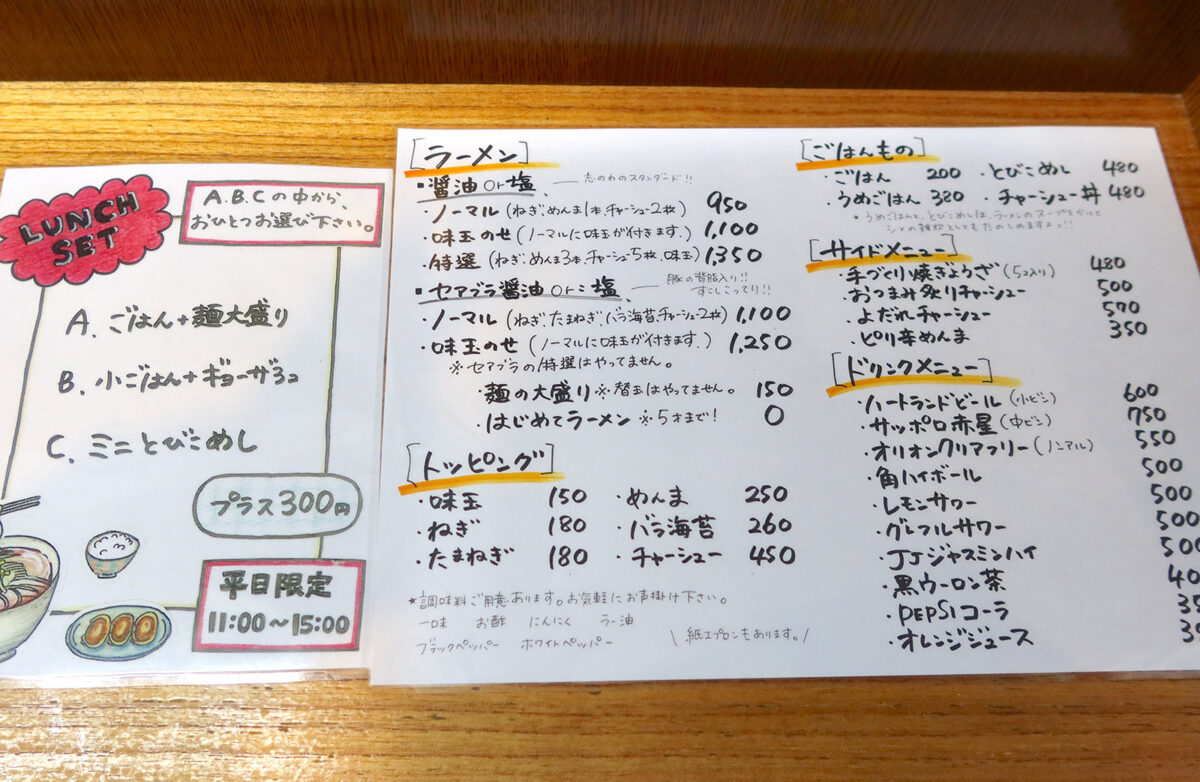 LUNCH
SET
A.B.Cの中から、
おひとつお選び下さい。
A. ごはん+麺大盛り
B. 小ごはん+ギョーザ3コ
C. ミニとびこめし
プラス300円
平日限定
11:00~15:00
[ラーメン]
▪醤油or塩 ― 志のわのスタンダード!!
・ノーマル(ねぎ、めんま1本、チャーシュー2枚) 950
・味玉のせ(ノーマルに味玉が付きます.) 1,100
・特選(ねぎ、めんま3本、チャーシュー5枚、味玉) 1,350
▪セアブラ醤油or塩 ― 豚の背脂入り!!
すこしこってり!!
・ノーマル(ねぎ、たまねぎ、バラ海苔、チャーシュー2枚) 1,100
・味玉のせ(ノーマルに味玉が付きます.) 1,250
※セアブラの特選はやってません。
・麺の大盛り※替玉はやってません。 150
・はじめてラーメン ※5才まで! 0
[トッピング]
・味玉 150 ・めんま 250
・ねぎ 180 ・バラ海苔 260
・たまねぎ 180 ・チャーシュー 450
★調味料ご用意あります。お気軽にお声掛け下さい。
一味 お酢 にんにく ラー油
ブラックペッパー ホワイトペッパー \紙エプロンもあります。/
[ごはんもの]
・ごはん 200 ・とびこめし 480
・うめごはん 380 ・チャーシュー丼 480
*うめごはんと、とびこめしは、ラーメンのスープをかけて
シメの雑炊としてもたのしめますよッ!!
[サイドメニュー]
・手づくり焼ぎょうざ(5コ入り) 480
・おつまみ炙りチャーシュー 500
・よだれチャーシュー 570
・ピリ辛めんま 350
[ドリンクメニュー]
・ハートランドビール(小ビン) 600
・サッポロ赤星(中ビン) 750
・オリオンクリアフリー(ノンアル) 550
・角ハイボール 500
・レモンサワー 500
・グレフルサワー 500
・JJジャスミンハイ 500
・黒ウーロン茶
・PEPSIコーラ
・オレンジジュース